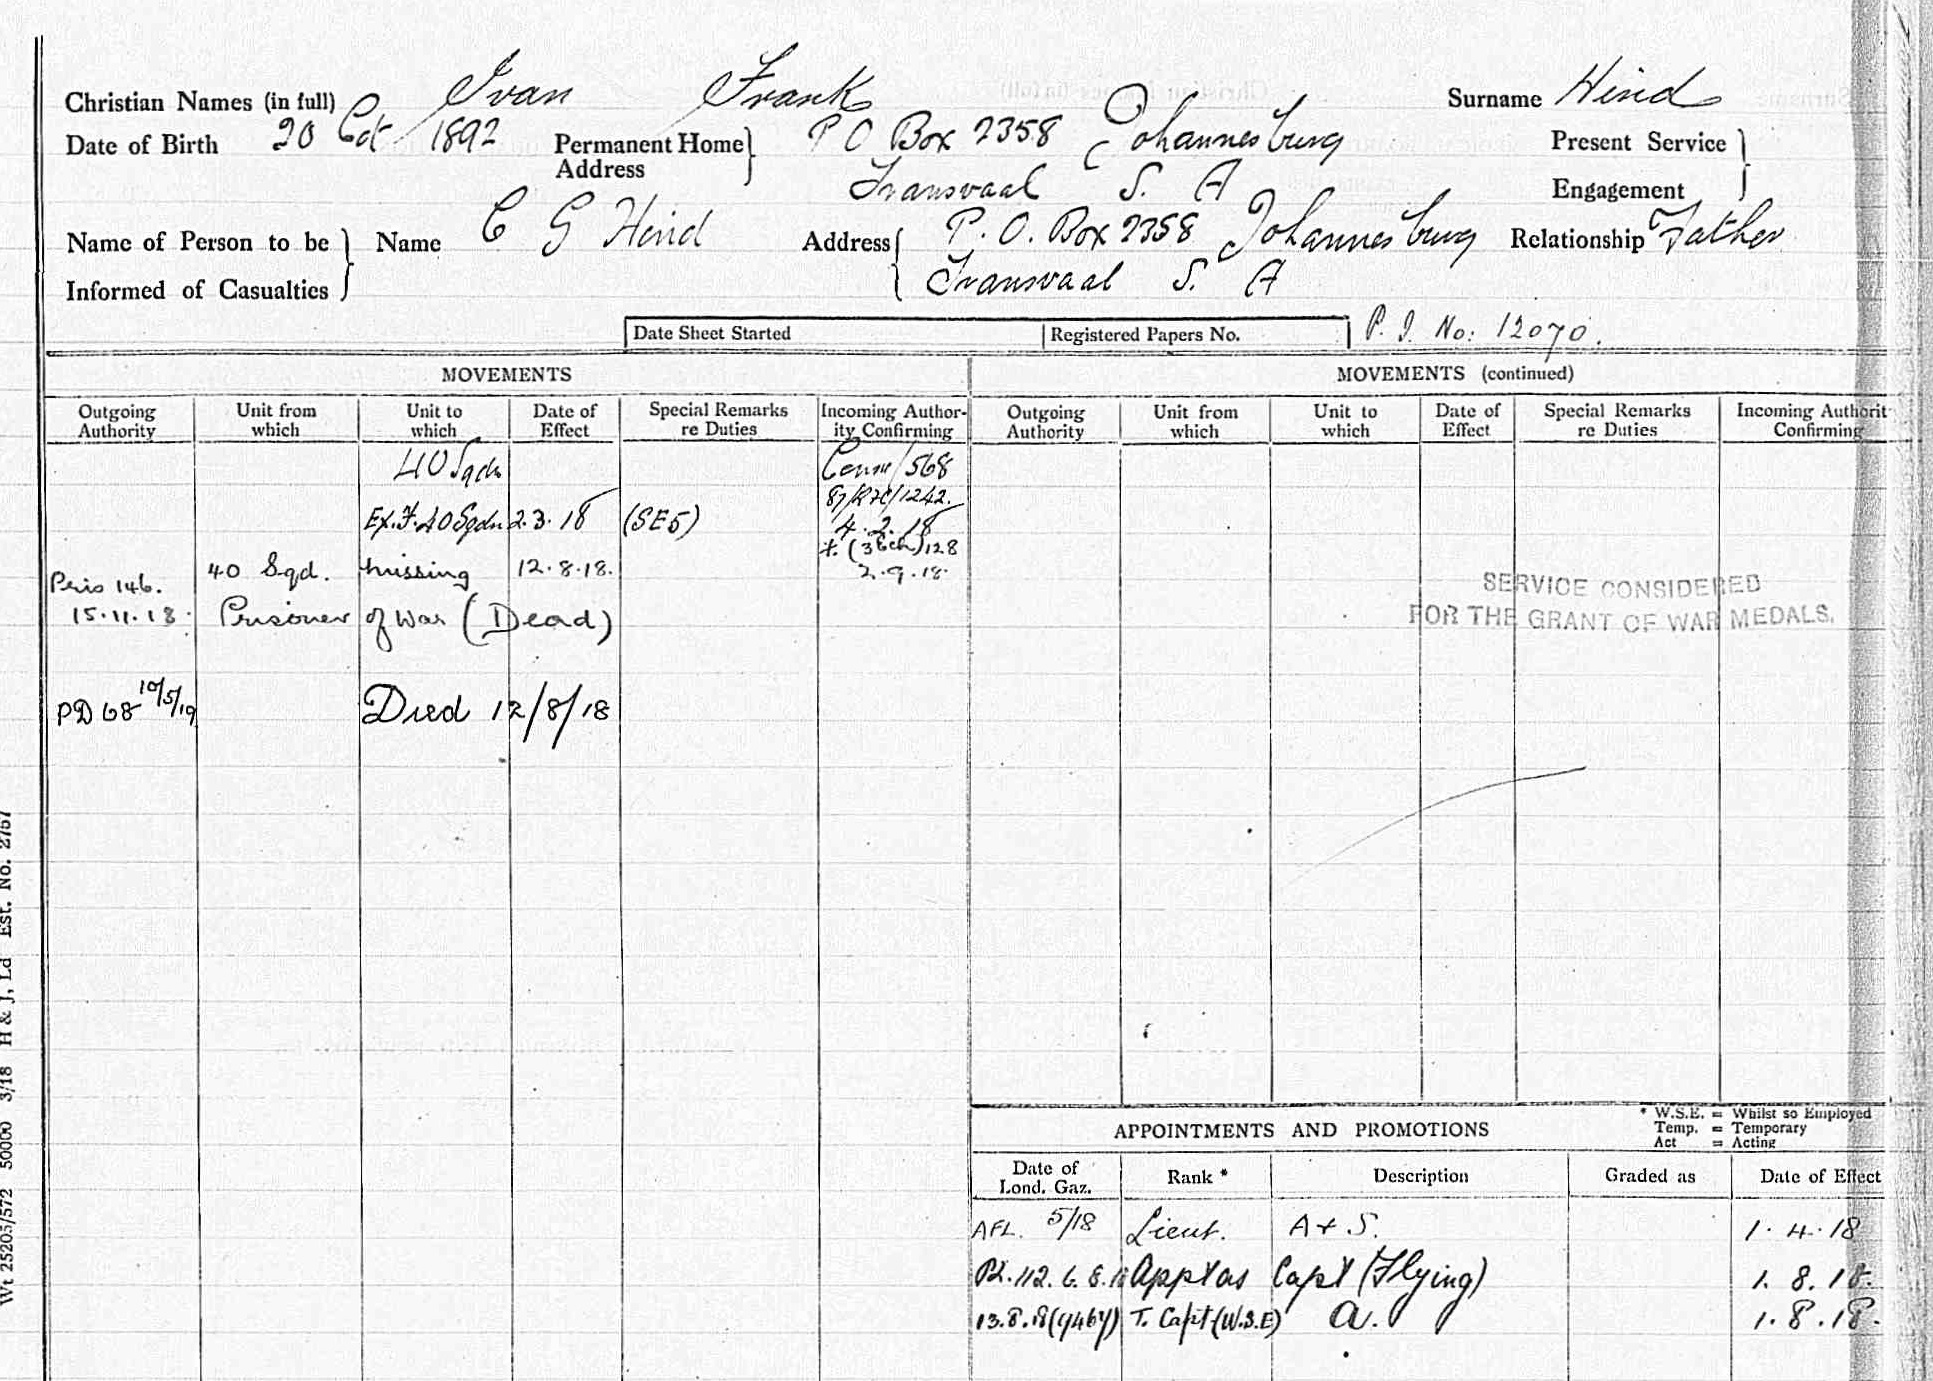 Christian Names (in full) Ivan Frank Surname Hind
Date of Birth 20 Oct 1892 Permanent Home Address P O Box 2358 Johannesburg Transvaal S. A Present Service Engagement
Name of Person to be Informed of Casualties Name C G Hind Address P. O. Box 2358 Johannesburg Transvaal S. A Relationship Father
Date Sheet Started Registered Papers No. P. I. No: 12070.
MOVEMENTS MOVEMENTS (continued)
Outgoing Authority Unit from which Unit to which Date of Effect Special Remarks re Duties Incoming Author-ity Confirming Outgoing Authority Unit from which Unit to which Date of Effect Special Remarks re Duties Incoming Authorit Confirming
40 Sqdn /568
Ex.F. 40 Sqdn 2.3.18 (SE5) 4.2.18
40 Sqd. Missing 12.8.18. 128
2.9.18.
Pris 146.
15.11.18. Prisoner of War (Dead)
SERVICE CONSIDERED
FOR THE GRANT OF WAR MEDALS.
PD 68 10/5/19 Died 12/8/18
APPOINTMENTS AND PROMOTIONS
* W.S.E. = Whilst so Employed
Temp. = Temporary
Act = Acting
Date of Lond. Gaz. Rank * Description Graded as Date of Effect
AFL. 5/18 Lieut. A + S. 1.4.18
112. 6.8.18 Appt as Capt (Flying) 1.8.18.
13.8.18 (9464) T. Capt (W.S.E) A. 1.8.18.
Wt 25205/572 50000 3/18 H & J, Ld Est. No. 2757